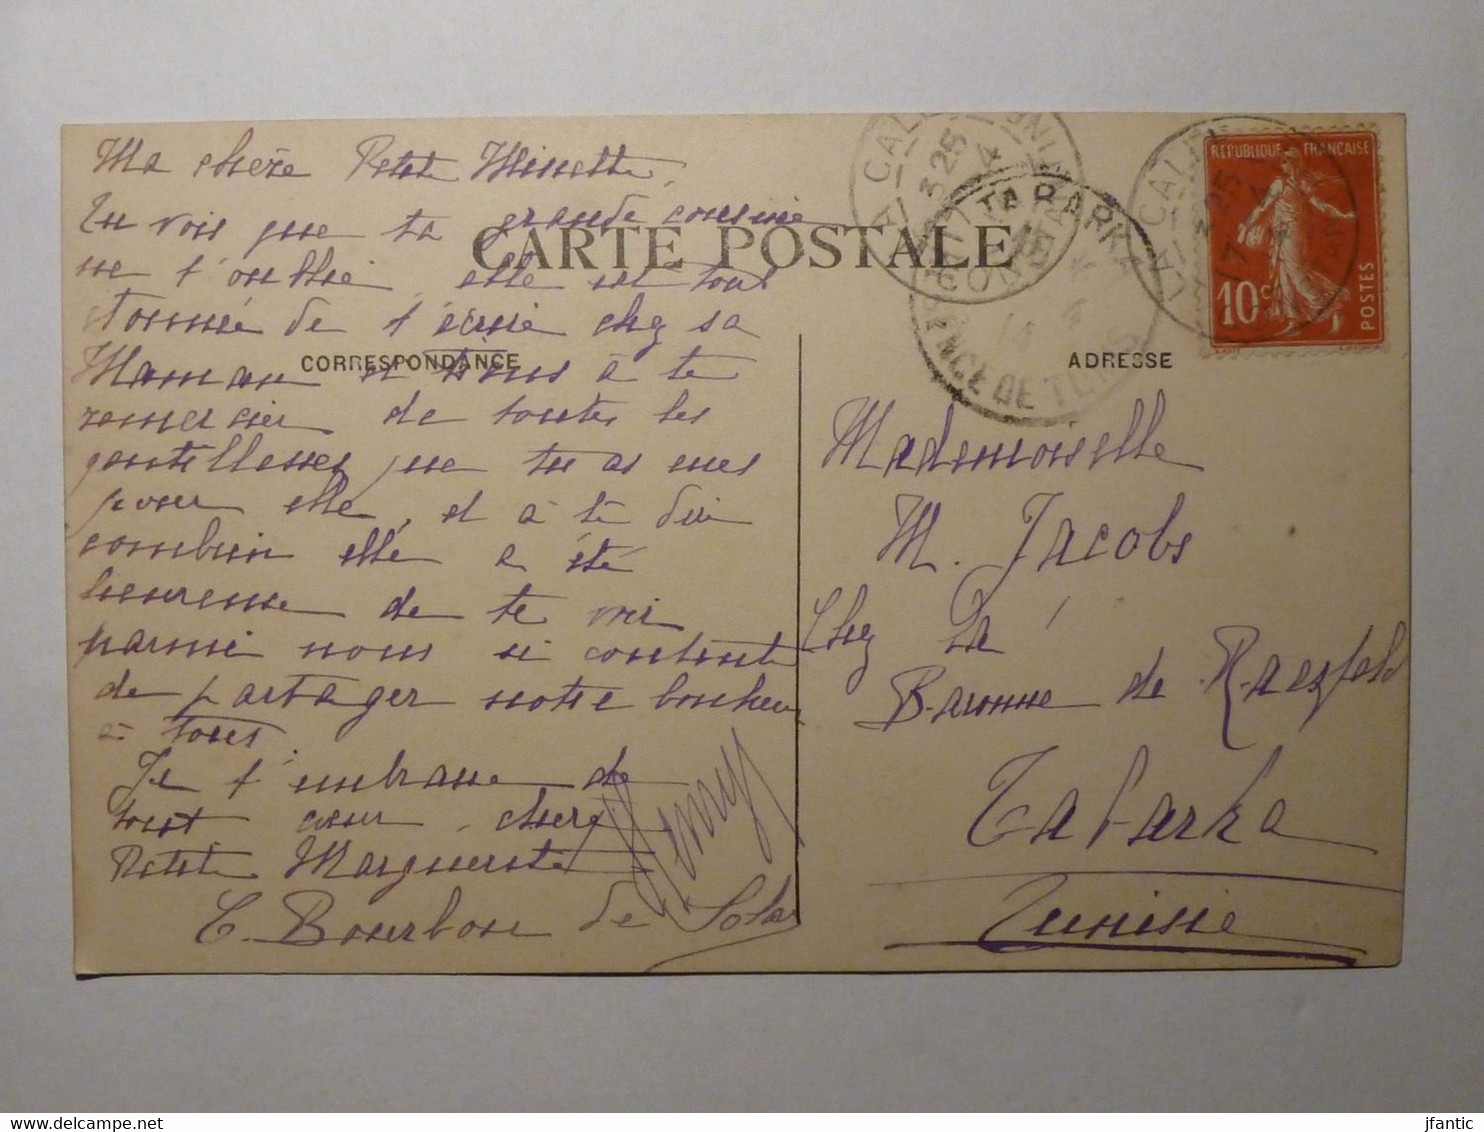 Ma chère Petite Minette,
Tu vois que ta grande cousine
CARTE POSTALE
ne t'oublie, elle est tout
étonnée de t'écrire chez sa
Maman et tiens à te
CORRESPONDANCE
remercier de toutes les
gentillesses que tu as eues
pour elle, et à te dire
combien elle a été
heureuse de te voir
parmi nous si contente
de partager notre bonheur
à tous.
Je t'embrasse de
tout cœur, chère
Petite Marguerite
Henry
C. Bourbon de
LA CALLE
3 25
TABARKA
REGENCE DE TUNIS
LA CALLE
REPUBLIQUE FRANÇAISE
10c
POSTES
ADRESSE
Mademoiselle
M. Jacobs
Chez La
Baronne de Raesfeld
Tabarka
Tunisie
jfantic